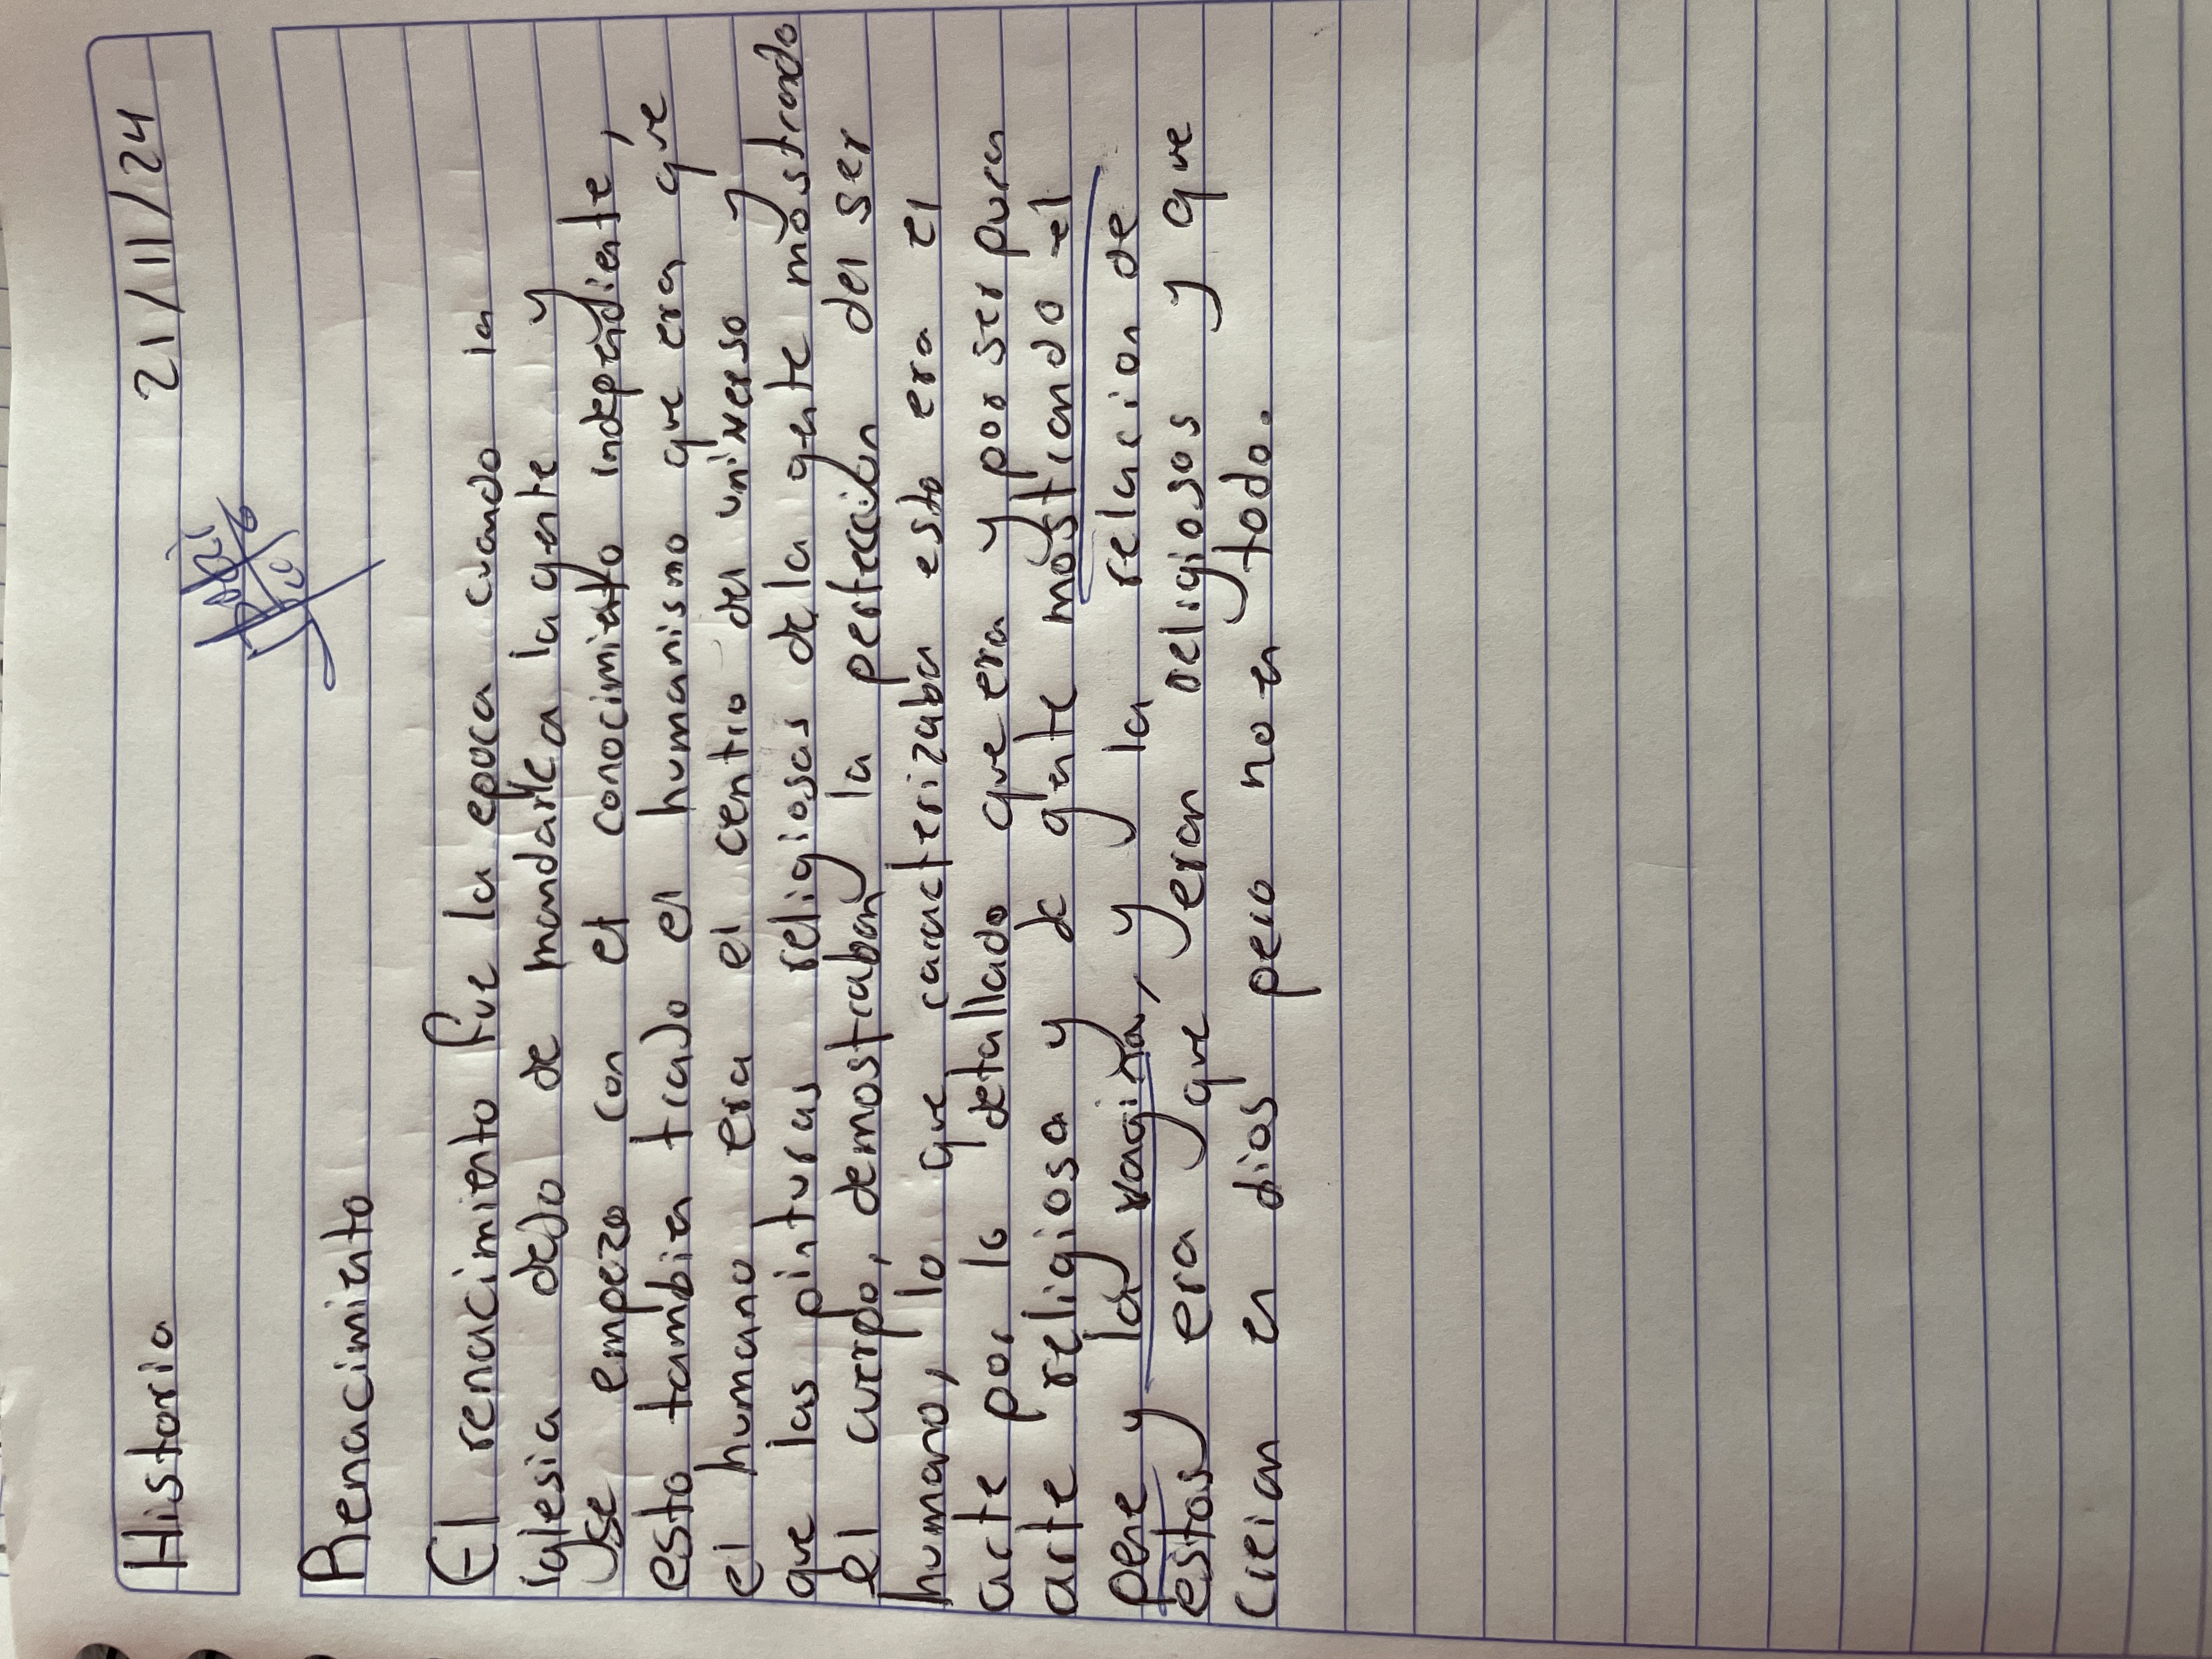 Historia 21/11/24
Renacimiento
El renacimiento fue la epoca cuando la
iglesia dejo de mandarle a la gente y
se empezo con el conocimiento independiente,
esto tambien trajo el humanismo que era que
el humano era el centro del universo y
que las pinturas religiosas de la gente mostrando
el cuerpo, demostraban la perfeccion del ser
humano, lo que caracterizaba esto era el
arte por lo detallado que era y por ser pura
arte religiosa y de gente mostrando el
pene y la vagina, y la relacion de
estos era que eran religiosos y que
creian en dios pero no en todo.